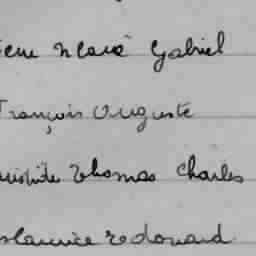 Marie Gabriel
François Auguste
Aristide Thomas Charles
Maurice Edouard